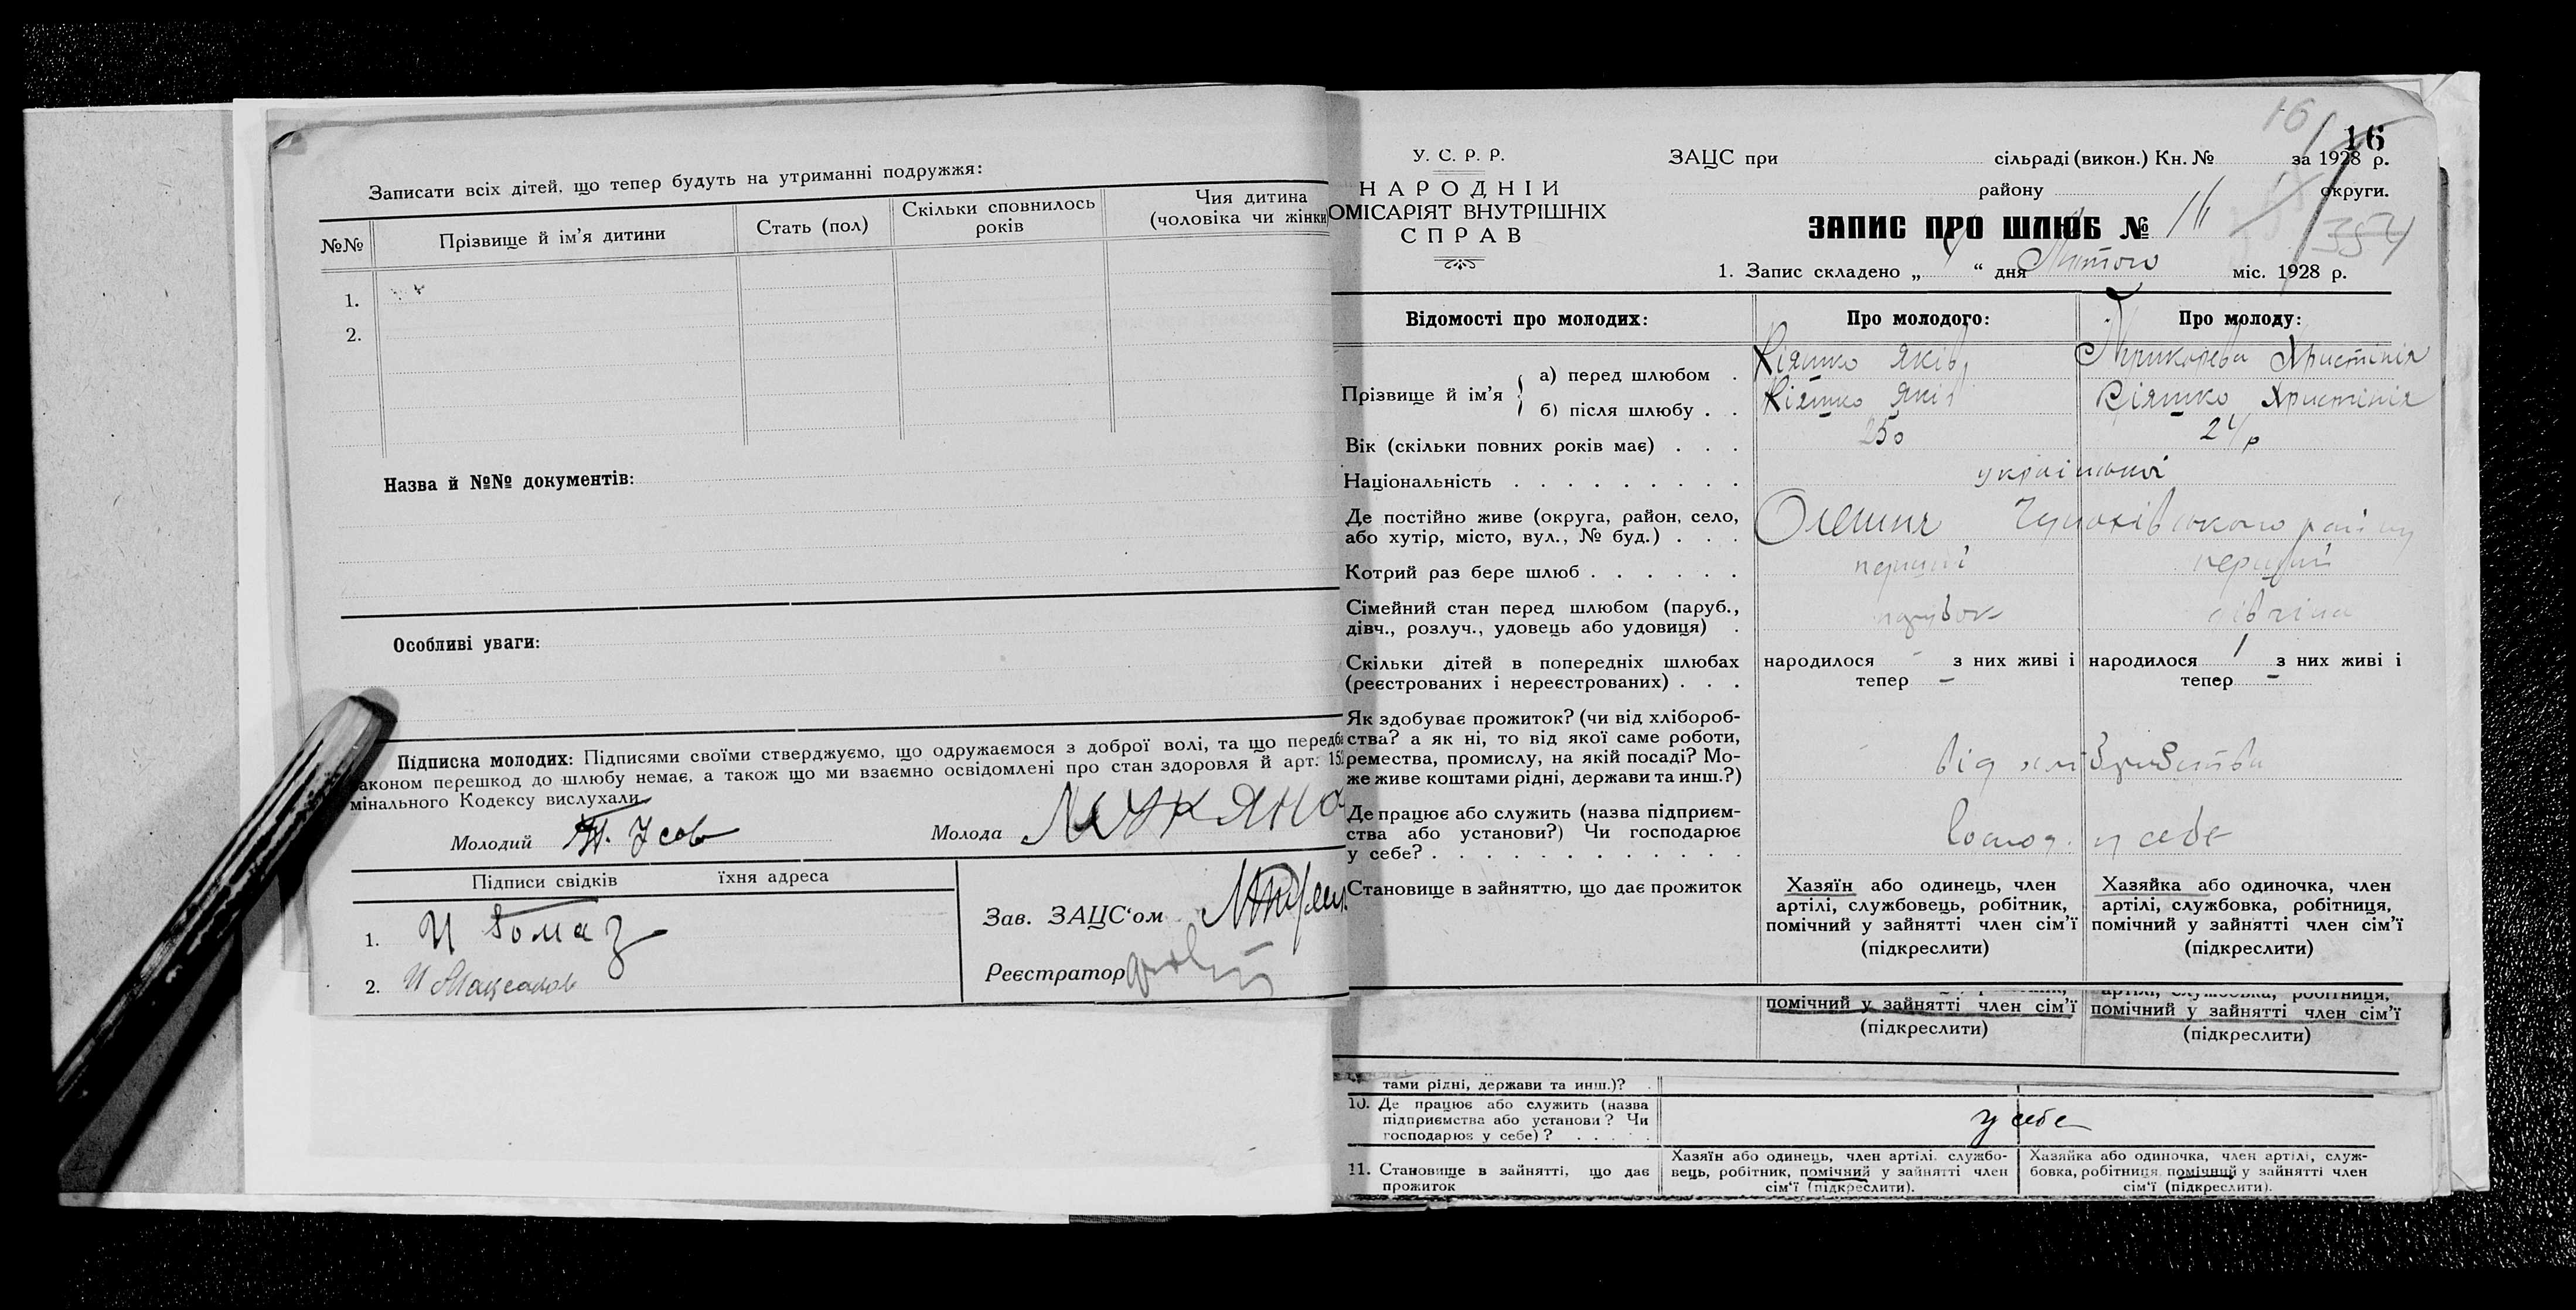 Записати всіх дітей, що тепер будуть на утриманні подружжя:
№№ Прізвище й ім'я дитини Стать (пол) Скільки сповнилось років Чия дитина (чоловіка чи жінки
1.
2.
Назва й №№ документів:
Особливі уваги:
Підписка молодих: Підписями своїми стверджуємо, що одружаємося з доброї волі, та що передб
аконом перешкод до шлюбу немає, а також що ми взаємно освідомлені про стан здоровля й арт. 15
мінального Кодексу вислухали
Молодий Усов Молода
Підписи свідків їхня адреса
1.
2.
Зав. ЗАЦС'ом
Реєстратор
16
16
У. С. Р. Р.
НАРОДНІЙ
ОМІСАРІЯТ ВНУТРІШНІХ
СПРАВ
ЗАЦС при сільраді (викон.) Кн. № за 1928 р.
району округи.
ЗАПИС ПРО ШЛЮБ № 16
354
1. Запис складено „ “ дня Лютого міс. 1928 р.
Відомості про молодих: Про молодого: Про молоду:
Прізвище й ім'я
а) перед шлюбом . Кіяшко Яків Христінія
б) після шлюбу . . Кіяшко Яків Кіяшко Христінія
Вік (скільки повних років має) . . . 25 24 р
Національність . . . . . . . . . української
Де постійно живе (округа, район, село,
або хутір, місто, вул., № буд.) . . . Олешня району
Котрий раз бере шлюб . . . . . . перший перший
Сімейний стан перед шлюбом (паруб.,
дівч., розлуч., удовець або удовиця) . парубок дівчина
Скільки дітей в попередніх шлюбах народилося - з них живі і народилося з них живі і
(реєстрованих і нереєстрованих) . . . тепер - тепер -
Як здобуває прожиток? (чи від хлібороб-
ства? а як ні, то від якої саме роботи,
ремества, промислу, на якій посаді? Мо-
же живе коштами рідні, держави та инш.?) від хліборобства
Де працює або служить (назва підприєм-
ства або установи?) Чи господарює
у себе? . . . . . . . . . . . . господ. у себе
Становище в зайняттю, що дає прожиток
Хазяїн або одинець, член
артілі, службовець, робітник,
помічний у зайнятті член сім'ї
(підкреслити)
Хазяйка або одиночка, член
артілі, службовка, робітниця,
помічний у зайнятті член сім'ї
(підкреслити)
помічний у зайнятті член сім'ї
(підкреслити)
артілі, службовка, робітниця,
помічний у зайнятті член сім'ї
(підкреслити)
тами рідні, держави та инш.)?
10. Де працює або служить (назва
підприємства або установи? Чи
господарює у себе)? . . . . . у себе
11. Становище в зайнятті, що дає
прожиток
Хазяїн або одинець, член артілі, службо-
вець, робітник, помічний у зайнятті член
сім'ї (підкреслити).
Хазяйка або одиночка, член артілі, служ-
бовка, робітниця, помічний у зайнятті член
сім'ї (підкреслити).